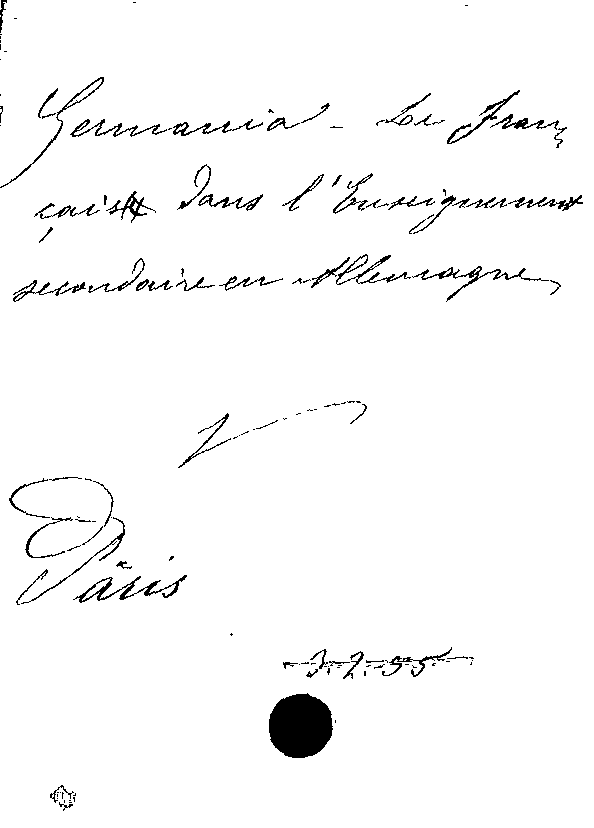 Germania - Le Fran-
çais dans l'Enseignement
secondaire en Allemagne,
Paris
3.2.55